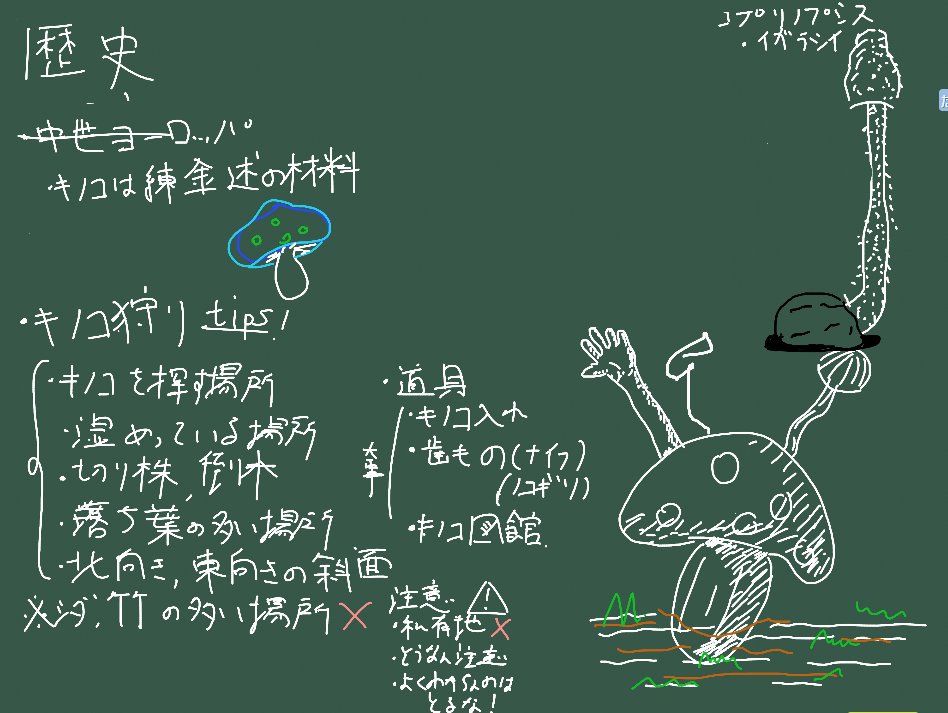 歴史
中世ヨーロッパ
・キノコは練金述の材料
・キノコ狩り tips!
・キノコを探す場所
・湿めっている場所
・切り株、倒木
・落ち葉の多い場所
・北向き、東向きの斜面
※シダ、竹の多い場所 ×
・道具
大事
・キノコ入れ
・歯もの(ナイフ)
(ノコギリ)
・キノコ図館
注意.. !
・私有地 ×
・そうなん注意
・よくわからんのは
とるな!
コプリノプシス
・イガラシイ